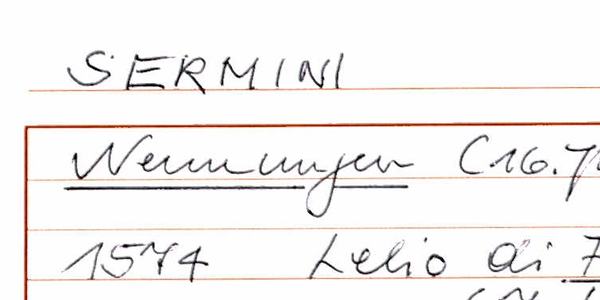 SERMINI
Nennungen (16.
1574 Lelio di